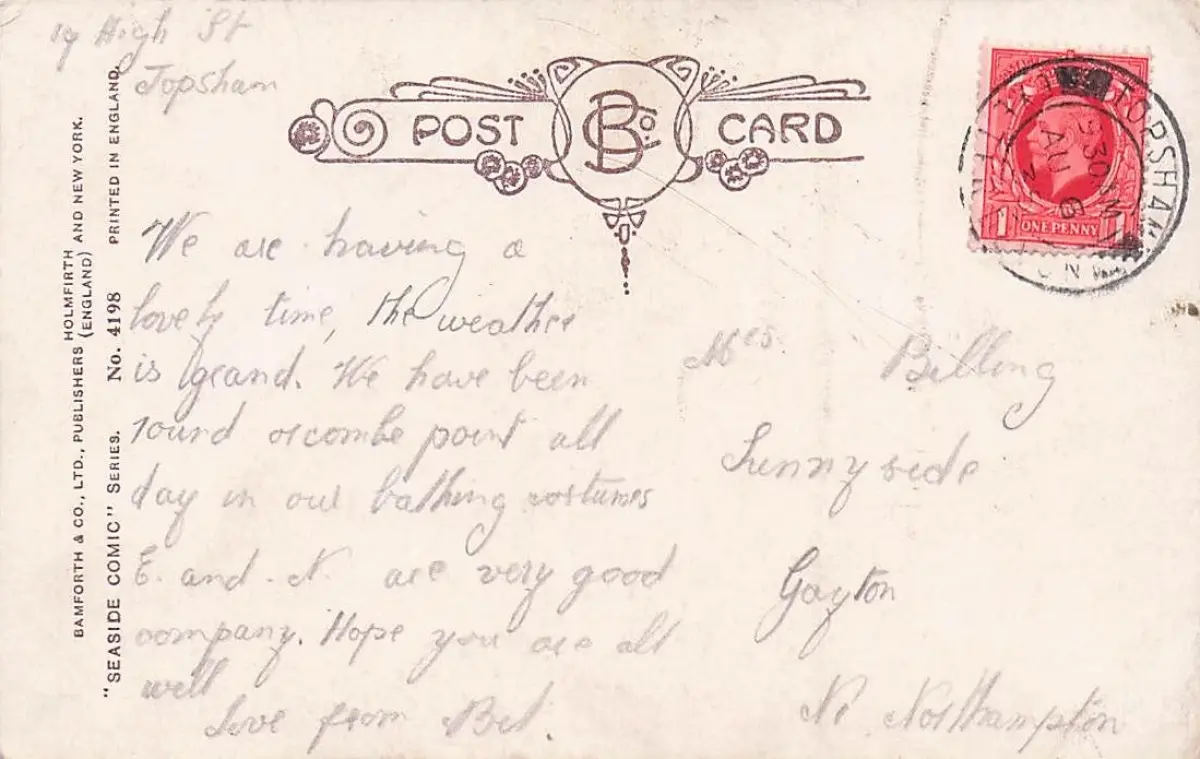 19 High St
Topsham
POST CARD
B Co.
We are having a
lovely time, the weather
is grand. We have been
round orcombe point all
day in our bathing costumes
E. and. N. are very good
company. Hope you are all
well
Love from Bet.
Mrs. Billing
Sunnyside
Gayton
Nr Northampton
TOPSHAM
9 30 AM
AU
ONE PENNY
1 1
BAMFORTH & CO., LTD., PUBLISHERS HOLMFIRTH (ENGLAND) AND NEW YORK.
"SEASIDE COMIC" SERIES. No. 4198 PRINTED IN ENGLAND.